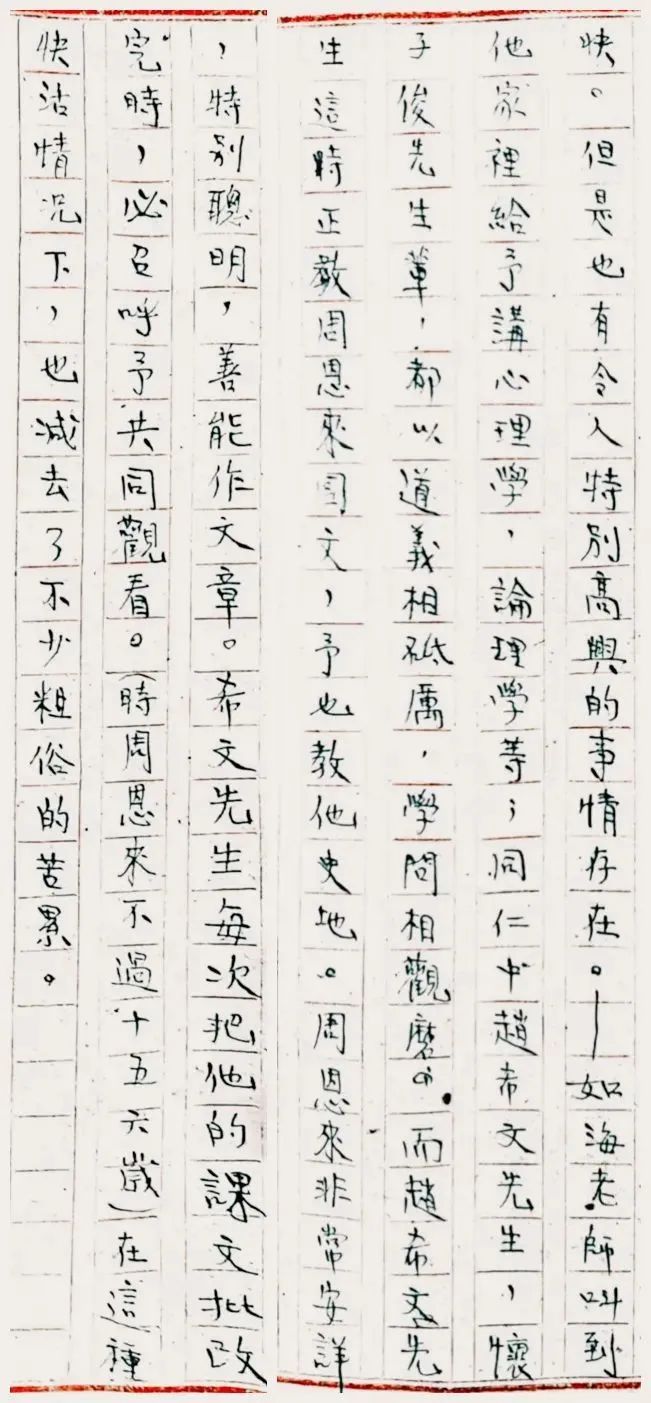 快。但是也有令人特別高興的事情存在。——如海老師叫到
他家裡給予講心理學,論理學等;同仁中趙希文先生,懷
子俊先生輩,都以道義相砥厲,學問相觀磨。而趙希文先
生這時正教周恩來国文,予也教他史地。周恩來非常安詳
,特別聰明,善能作文章。希文先生每次把他的課文批改
完時,必召呼予共同觀看。(時周恩來不過十五六歲)在這種
快活情况下,也減去了不少粗俗的苦累。